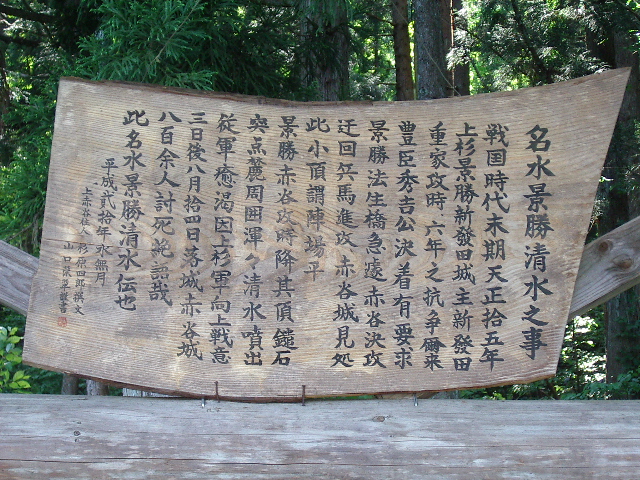 名水景勝清水之事
戦国時代末期天正拾五年
上杉景勝新發田城主新發田
重家攻時、六年之抗争爾来
豊臣秀吉公決着有要求
景勝法住橋急遽赤谷決攻
迂回兵馬進攻赤谷城見処
此小頂謂陣場平
景勝赤谷攻時降其頂鏡石
與点麓周囲渾々清水噴出
従軍癒渇因上杉軍向上戦意
三日後八月拾四日落城赤谷城
八百余人討死
此名水景勝清水伝也
平成弐拾年水無月
上赤谷谷人
撰文
山口